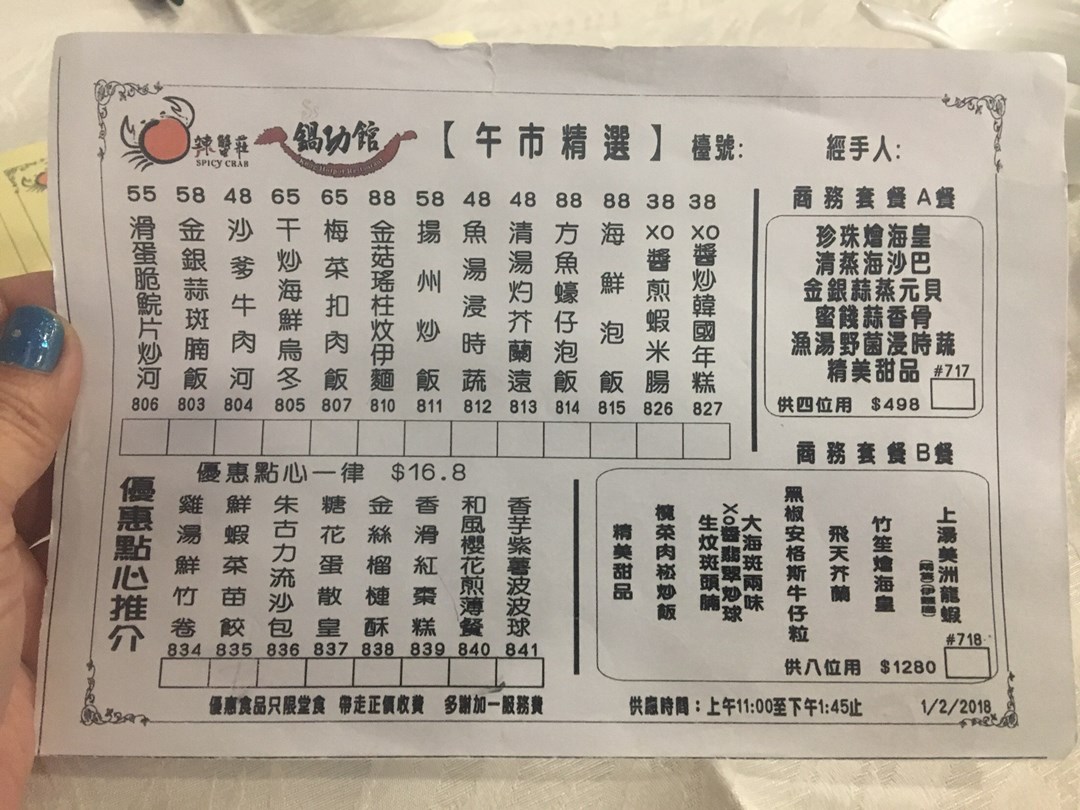 辣蟹莊
SPICY CRAB
鍋功館
【午市精選】
檯號:
經手人:
55 滑蛋脆鯇片炒河 806
58 金銀蒜斑腩飯 803
48 沙爹牛肉河 804
65 干炒海鮮烏冬 805
65 梅菜扣肉飯 807
88 金菇瑤柱炆伊麵 810
58 揚州炒飯 811
48 魚湯浸時蔬 812
48 清湯灼芥蘭遠 813
88 方魚蠔仔泡飯 814
88 海鮮泡飯 815
38 XO醬煎蝦米腸 826
38 XO醬炒韓國年糕 827
商務套餐A餐
珍珠燴海皇
清蒸海沙巴
金銀蒜蒸元貝
蜜餞蒜香骨
漁湯野菌浸時蔬
精美甜品
#717
供四位用 $498
優惠點心推介
優惠點心一律 $16.8
雞湯鮮竹卷 834
鮮蝦菜苗餃 835
朱古力流沙包 836
糖花蛋散皇 837
金絲榴槤酥 838
香滑紅棗糕 839
和風櫻花煎薄餐 840
香芋紫薯波波球 841
商務套餐B餐
上湯美洲龍蝦
竹笙燴海皇
飛天芥蘭
黑椒安格斯牛仔粒
大海斑兩味
XO醬翡翠炒球
生炆斑頭腩
欖菜肉崧炒飯
精美甜品
#718
供八位用 $1280
優惠食品只限堂食 帶走正價收費 多謝加一服務費
供應時間：上午11:00至下午1:45止
1/2/2018